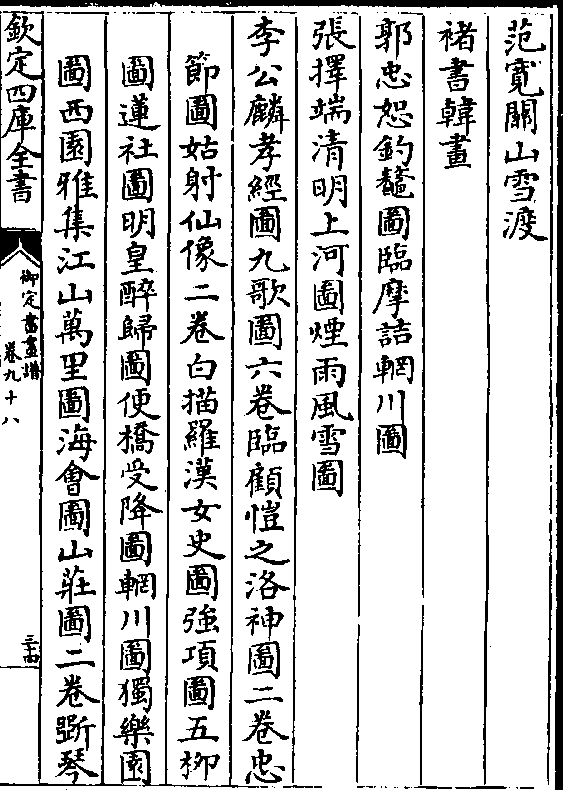 范寛關山雪渡
褚書韓畫
郭忠恕釣鼇圖臨摩詰輞川圖
張擇端清明上河圖煙雨風雪圖
李公麟孝經圖九歌圖六卷臨顧愷之洛神圖二卷忠
節圖姑射仙像二卷白描羅漢女史圖強項圖五栁
圖蓮社圖明皇醉歸圖便橋受降圖輞川圖獨樂園
圖西園雅集江山萬里圖海會圖山莊圖二卷斵琴
欽定四庫全書
御定書畫譜
卷九十八
三十四